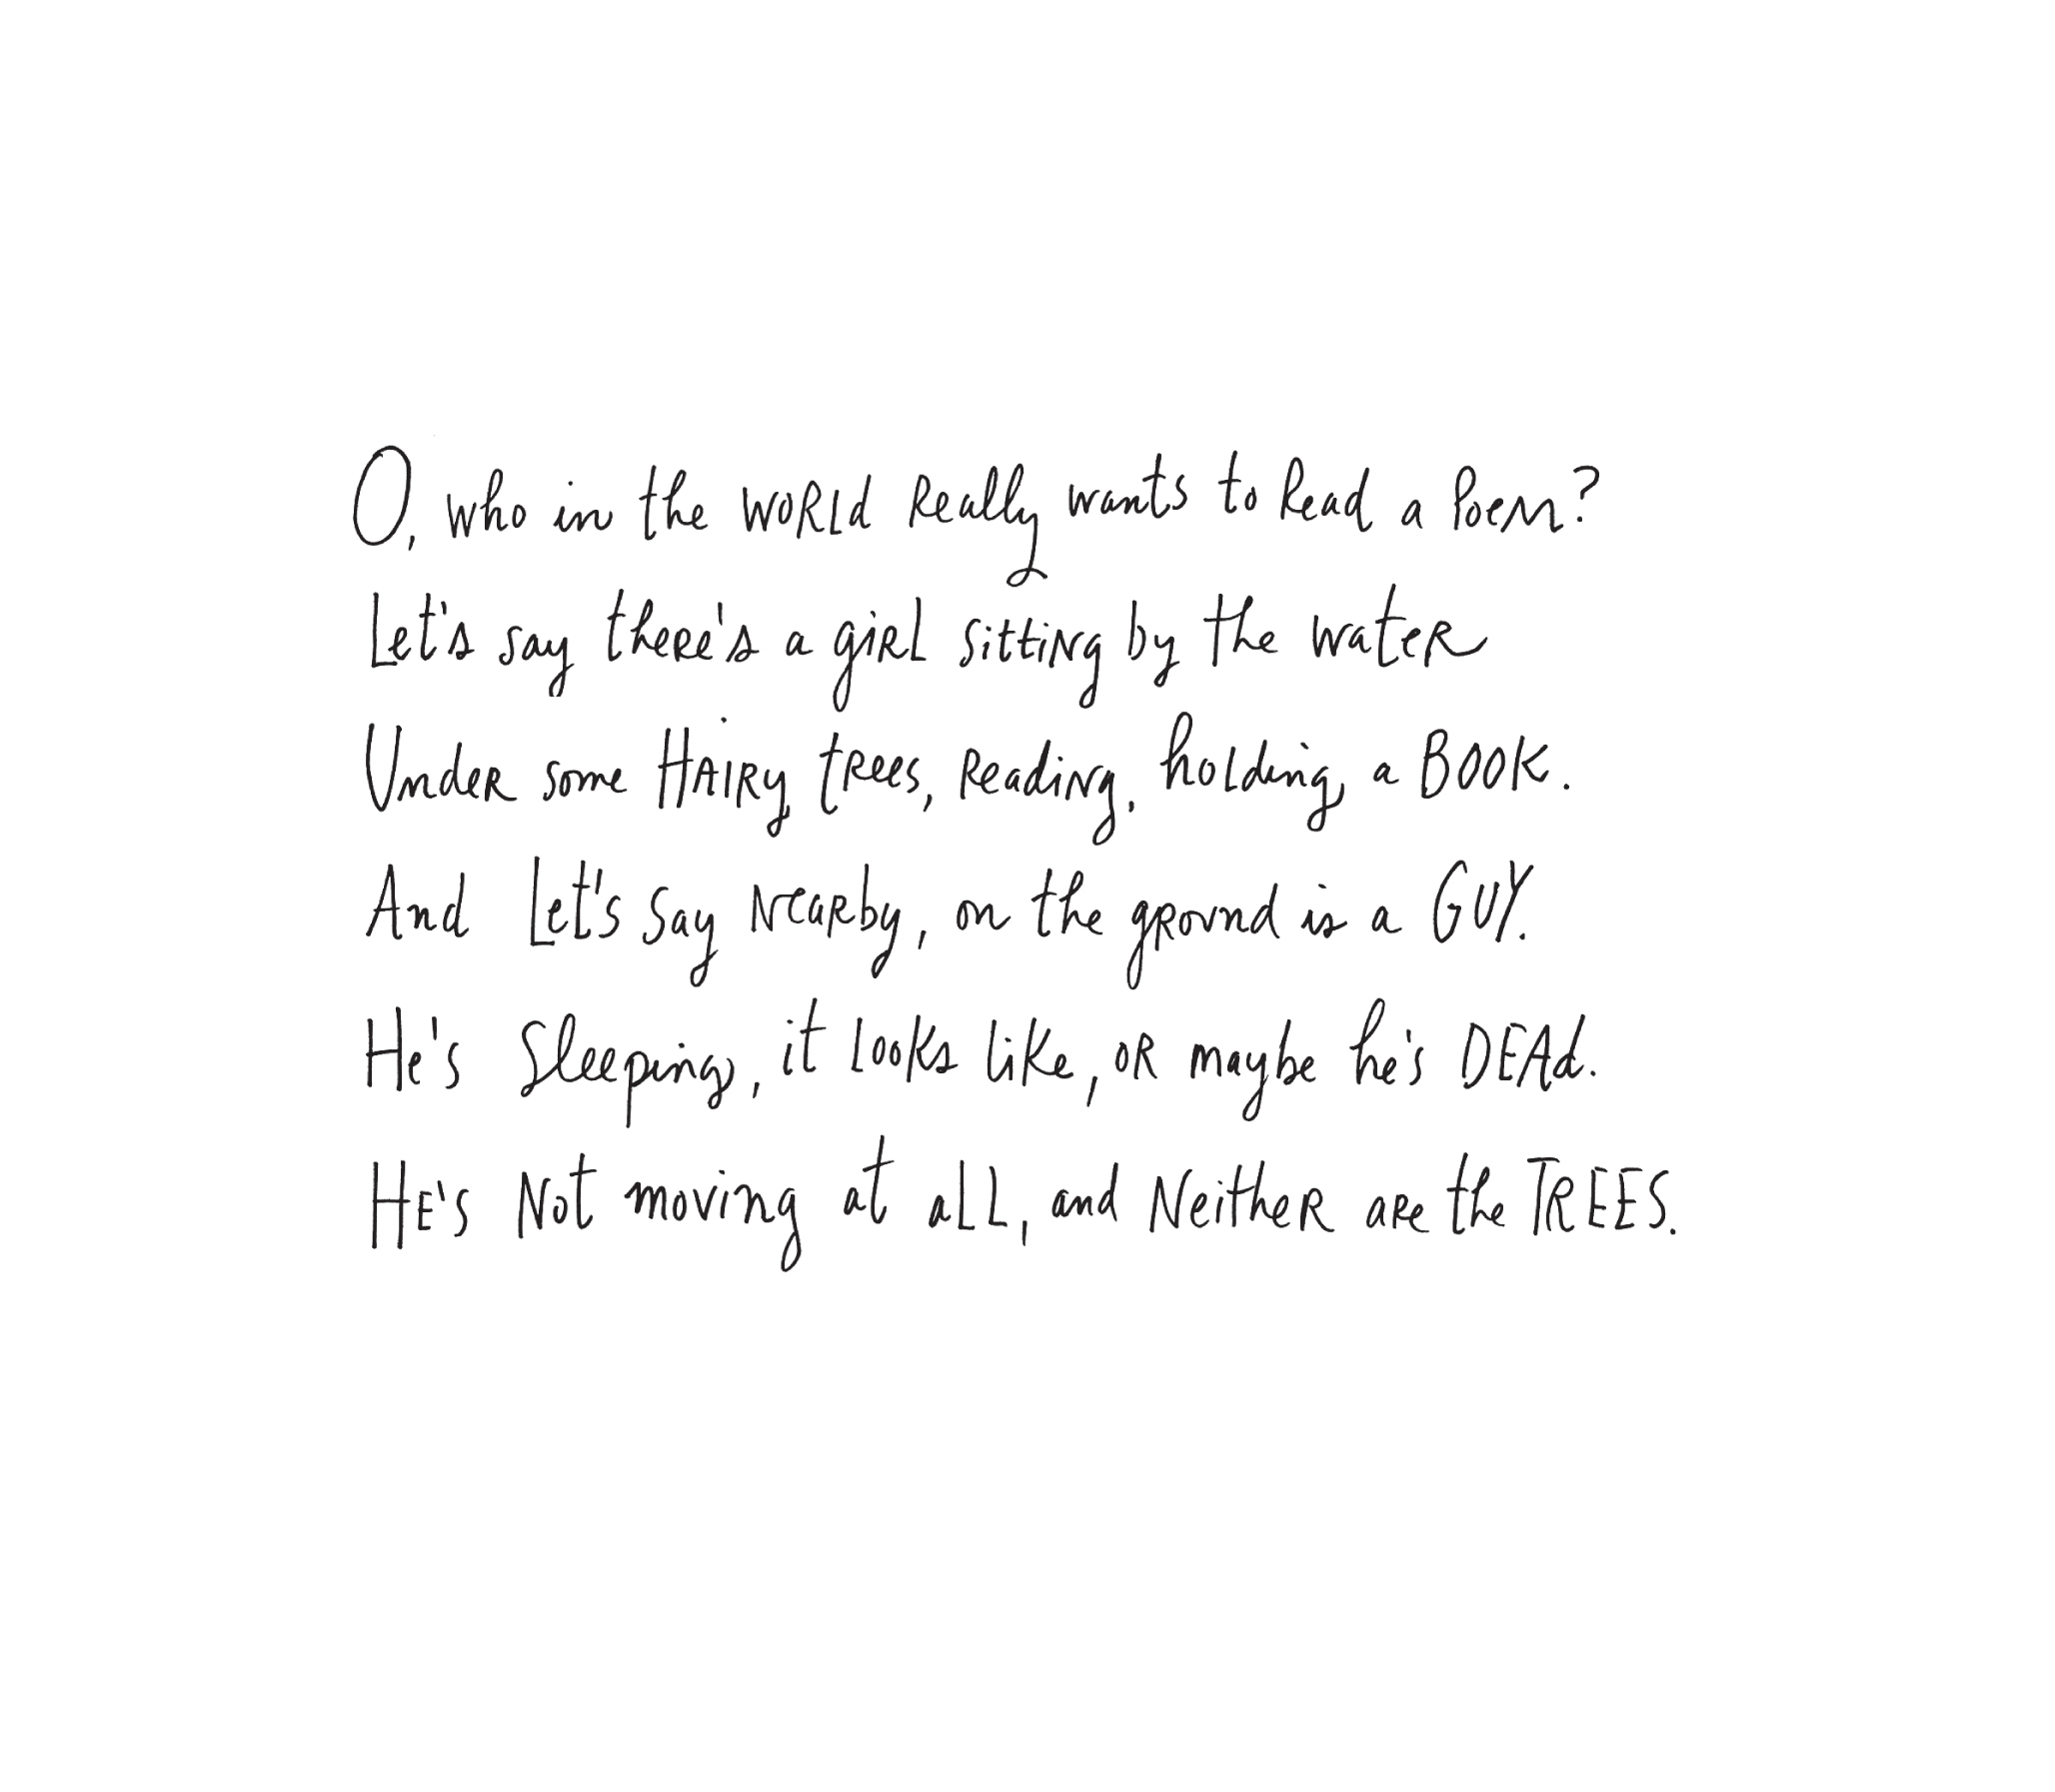 O, who in the WORLd Really wants to Read a Poem?
Let's say there's a giRL sittiNg by the wateR
UndeR some HAIRy tRees, ReadiNg, hoLding a BOOK.
And Let's say NeaRby, on the gRound is a GUY.
He's Sleeping, it Looks like, oR maybe he's DEAd.
HE's Not moving at aLL, and NeitheR aRe the TREES.